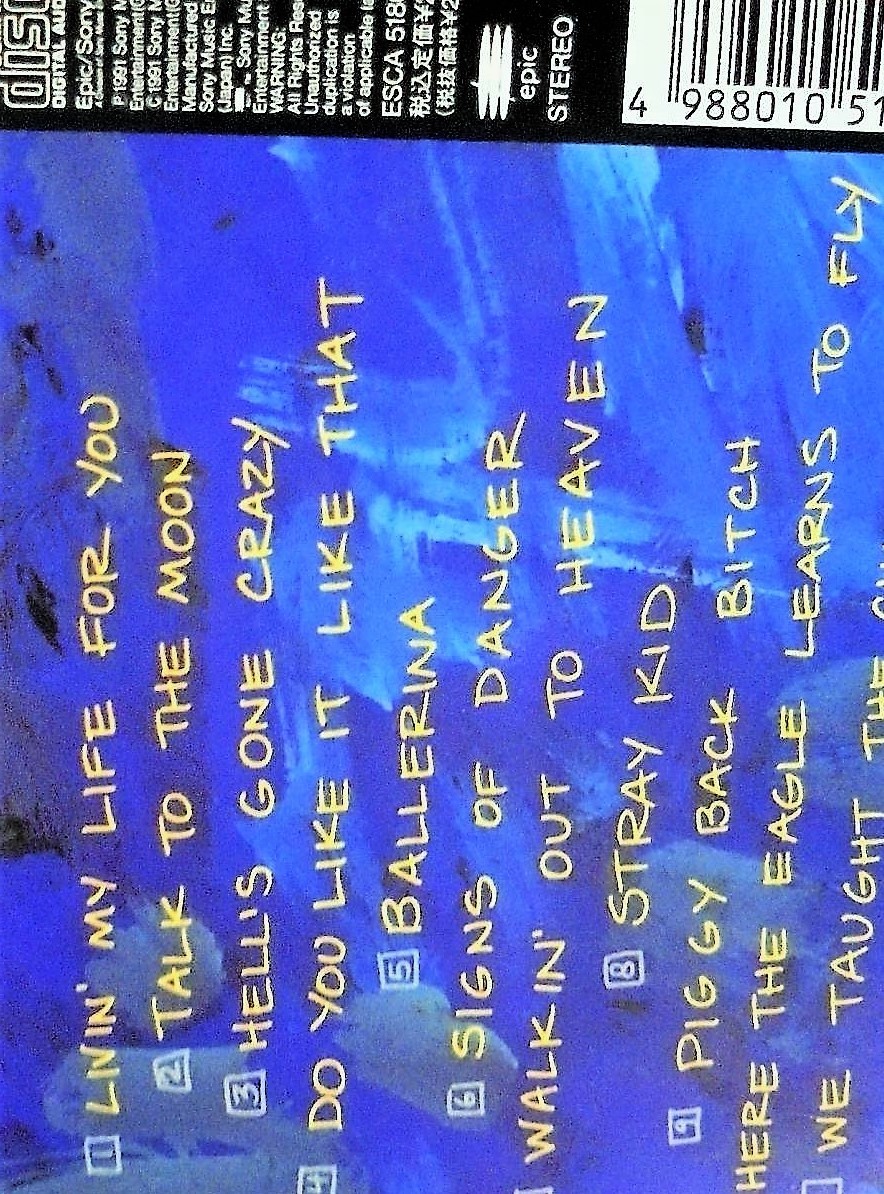 disc
DIGITAL AUD
Epic/Sony
℗ 1991 Sony M
Entertainment(
© 1991 Sony M
Entertainment(
Manufactured
Sony Music E
(Japan) Inc.
Sony Mu
Entertainment
WARNING:
All Rights Res
Unauthorized
duplication is
a violation
of applicable la
ESCA 518
税込定価¥2
(税抜価格¥2
epic
STEREO
4 988010 51
1 LIVIN' MY LIFE FOR YOU
2 TALK TO THE MOON
3 HELL'S GONE CRAZY
4 DO YOU LIKE IT LIKE THAT
5 BALLERINA
6 SIGNS OF DANGER
WALKIN' OUT TO HEAVEN
8 STRAY KID
9 PIGGY BACK BITCH
HERE THE EAGLE LEARNS TO FLY
WE TAUGHT THE